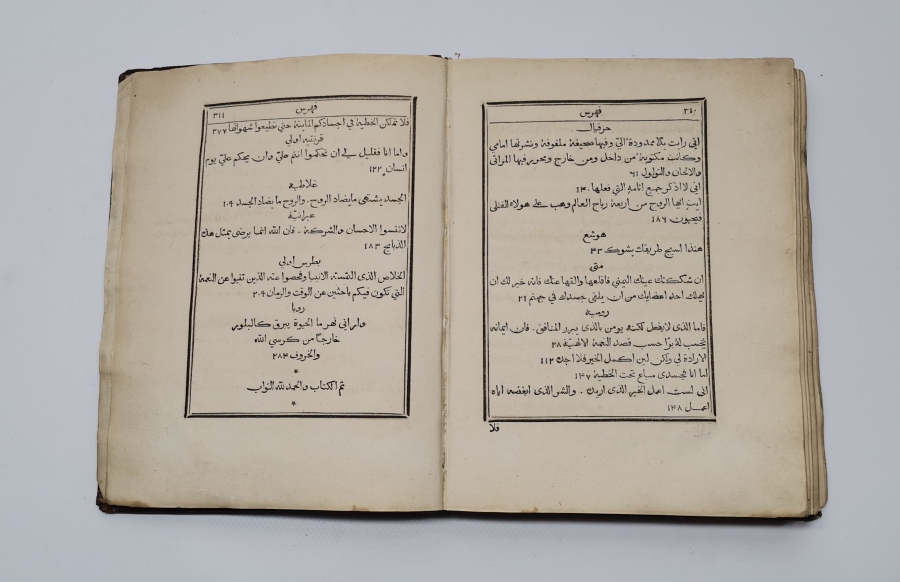 ٣٤٠
فهرس
حزقيال
اني رايت يدًا ممدودة اليّ وفيها صحيفة ملفوفة ونشرتها امامي
وكانت مكتوبة من داخل ومن خارج ومحرر فيها المراثي
والالحان والتواول ٦١
اني لا اذكر جميع اثامه التي فعلها ١٣٠
ايتِ ايها الروح من اربعة رياح العالم وهب على هولاء القتلى
فيحيون ١٨٦
هوشع
هنذا اسيج طريقك بشوك ٤٣
متى
ان شككتك عينك اليمنى فاقلعها والقها عنك فانه خير لك ان
يهلك احد اعضايك من ان يلقى جسدك في جهنم ٢١
رومية
فاما الذي لا يفعل لكنه يومن بالذي يبرر المنافق ـ فان ايمانه
يحسب له برًا حسب قصد النعمة الالهيّة ٣٨
الارادة لي ولكن لين اكمل الخير فلا اجد ١١٣
اما انا فجسدي مباع تحت الخطية ١٤٧
اني لست اعمل الخير الذي اريد ـ والشر الذي ابغضه اياه
اعمل ١٤٨
فلا
فهرس
٣٤١
فلا تملكن الخطية في اجسادكم المايتة حتى تطيعوا شهواتها ٢٧٧
قرنتيه اولى
واما انا فقليل لي ان تحكموا انتم عليّ وان يحكم عليّ يوم
انسان ١٢٢
غلاطيه
الجسد يشتهي ما يضاد الروح ـ والروح ما يضاد الجسد ٢٠٤
عبرانيّة
لا تنسوا الاحسان والشركة ـ فان الله انما يرضى بمثل هذه
الذبايح ١٨٣
بطرس اولى
الخلاص الذي التمسته الانبيا وفحصوا عنه الذين تنبوا عن النعمة
التي تكون فيكم باحثين عن الوقت والزمان ٢٠٤
رويا
واراني نهر ما الحيوة يبرق كالبلور
خارجًا من كرسي الله
والخروف ٢٨٤
*
تم الكتاب والحمد لله التواب
*